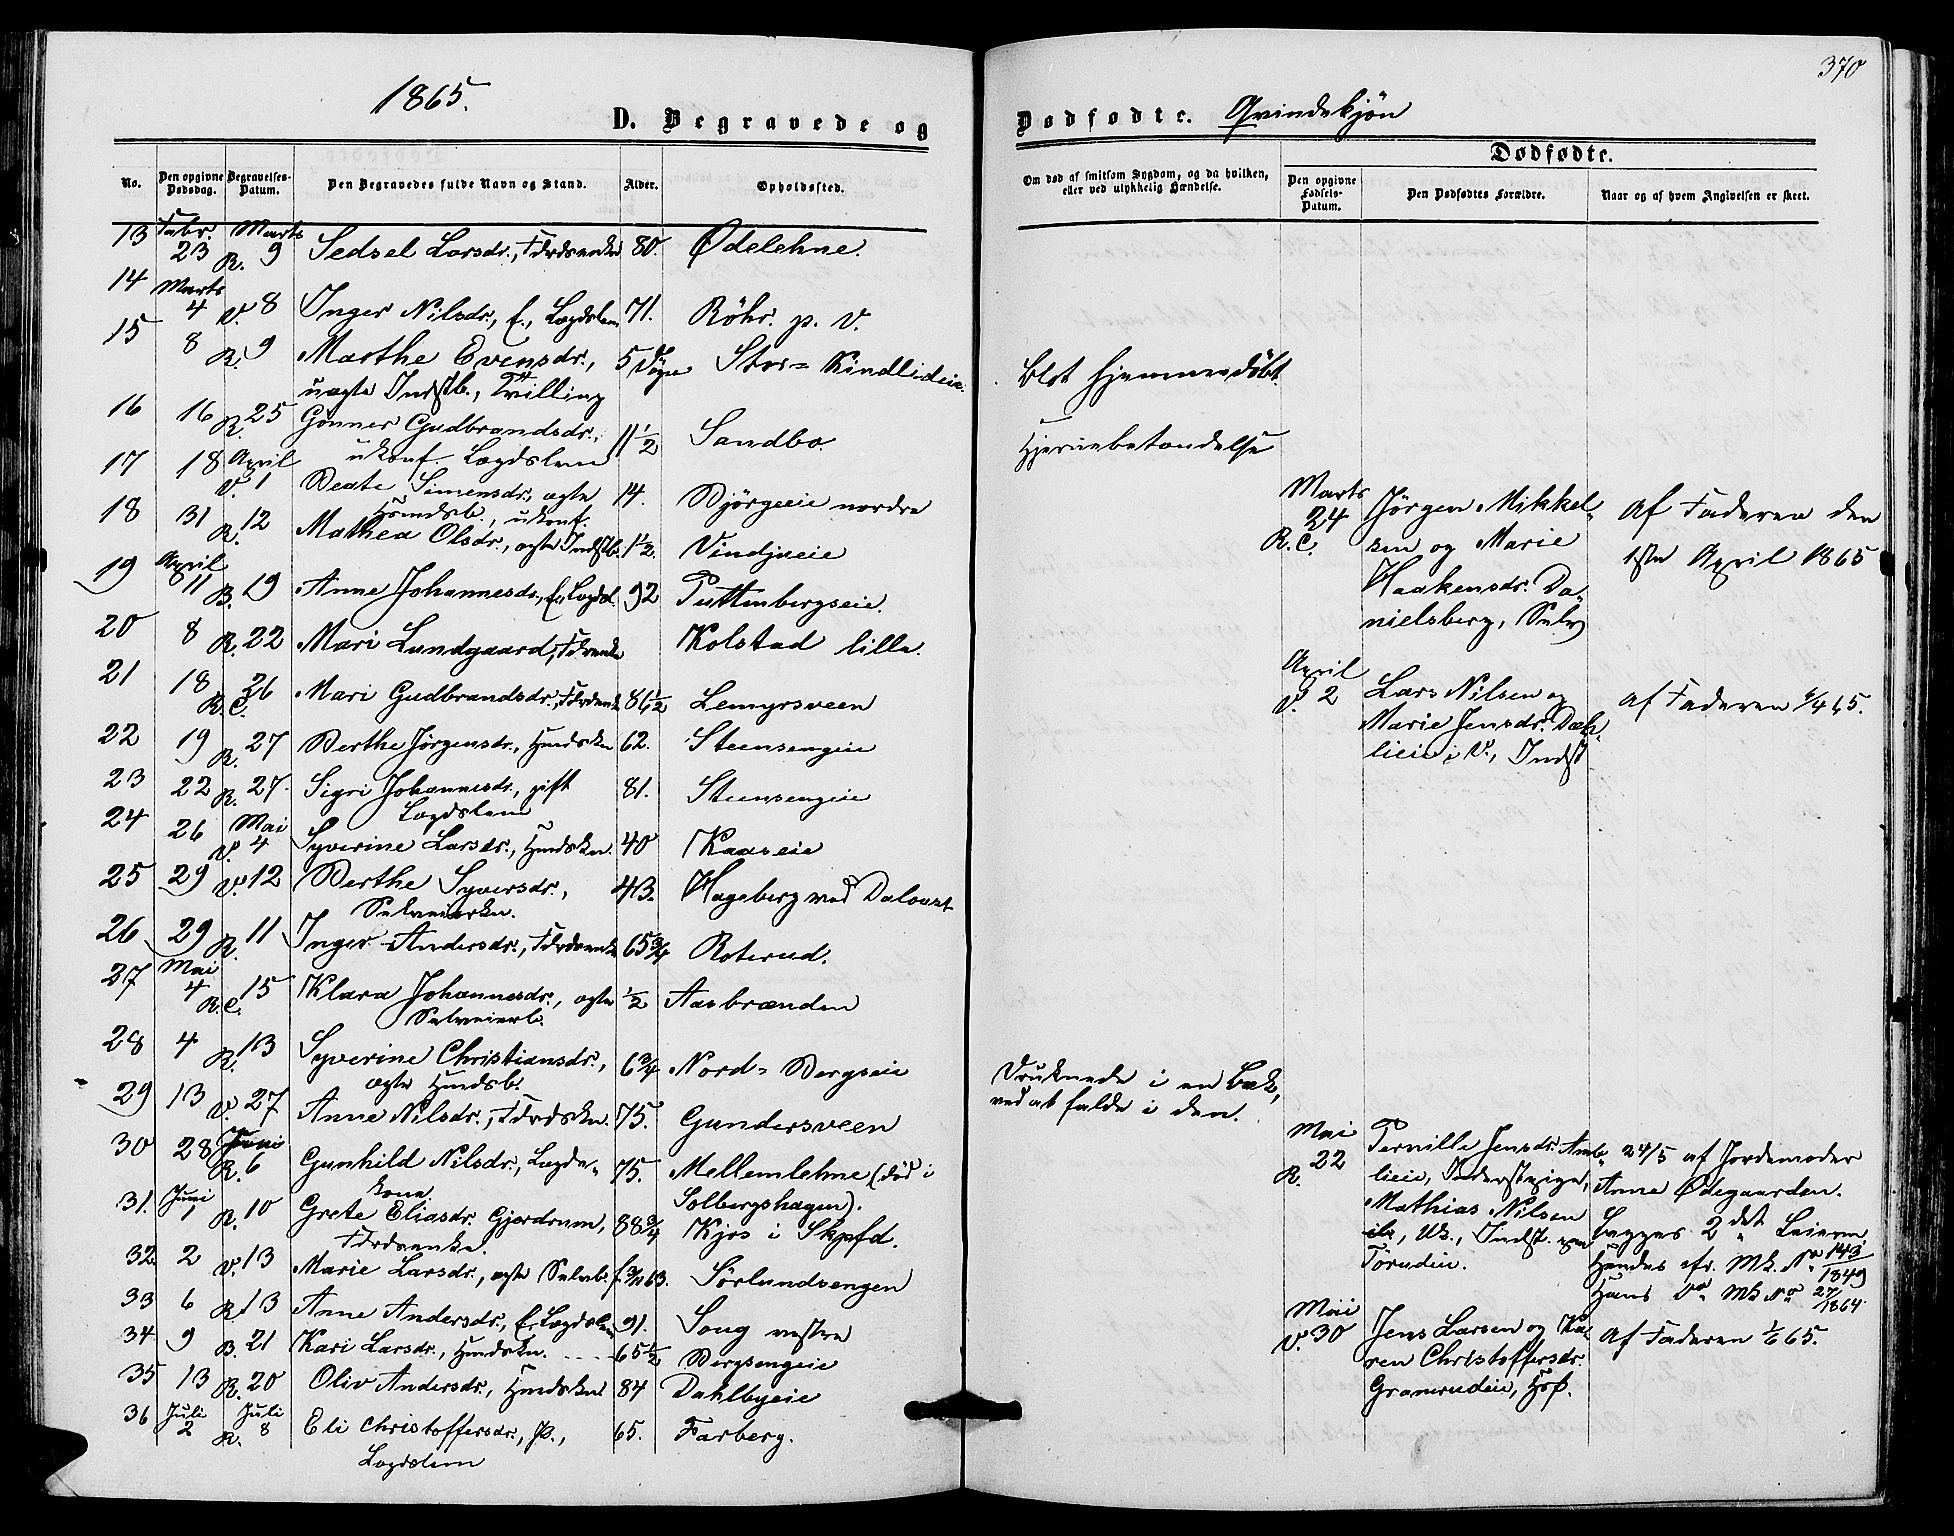 370
1865.
D. Begravede og Dødfødte. Qvindekjøn
No. Den opgivne Dødsdag. Begravelses-Datum. Den Begravedes fulde Navn og Stand. Alder. Opholdssted.
13 Febr. 23 Marts R. 9 Sedsel Larsdr., Fdrdsenke 80. Ødelehne.
14 Marts 4 V. 8 Inger Nilsdr., E., Lægdslem 71. Röhr. p. V.
15 8 R. 9 Marthe Evensdr., 5 Døgn Stor= Kindlieie.
uægte Indstb., Tvilling
16 16 R. 25 Gonner Gudbrandsdr., 11 1/2 Sandbo.
ukonf. Lægdslem
17 18 April V. 1 Beate Simensdr., ægte 14. Bjørgeeie nordre
Hsmdsb., ukonf.
18 31 R. 12 Mathea Olsdr., ægte Indstb. 1 1/2. Vindjueie
19 April 11 B. 19 Anne Johannesdr., E., Lægdsl. 92 Puttenbergseie.
20 8 R. 22 Mari Lundgaard, Fdrenke Kolstad lille.
21 18 R. C. 26 Mari Gudbrandsdr., Fdrdsenke 86 1/2 Lemyrsveen
22 19 R. 27 Berthe Jörgensdr., Hmdskn 62. Steensengeie
23 22 R. 27. Sigri Johannesdr., gift 81. Steensengeie
Lægdslem
24 26 Mai V. 4 Syverine Larsdr., Hmdskn. 40 Kaaseie
25 29 V. 12 Berthe Syversdr., 43. Hageberg ved
Selveierkn.
26 29 R. 11 Inger Andersdr., Fdrdsenke 65 3/4 Roterud.
27 Mai 4 R. C. 15 Klara Johannesdr., ægte 1/2 Aasbrænden
Selveierb.
28 4 R. 13 Syverine Christiansdr., 6 3/4 Nord= Bergseie
ægte Hmdsb.
29 13 V. 27 Anne Nilsdr., Fdrdskn. 75. Gundersveen
30 28 Juni R. 6 Gunhild Nilsdr., Lægds- 75. Mellemlehne (død i
kone. Solbergshagen).
31. Juni 1 R. 10 Grete Eliasdr. Gjerdrum, 88 3/4 Kjos i Skpfd.
Fdrdsenke.
32. 2 V. 13 Marie Larsdr., ægte Selvb. f. 3/11 63. Sörlundsengen
33 6 R. 13 Anne Andersdr., E., Lægdslem 91. Soug vestre
34 9 B. 21 Kari Larsdr., Hmdskn. 65 1/2 Bergsengeie
35 13 R. 20 Oliv Andersdr., Hmdsken 84 Dahlbyeie
36 Juli 2 Juli R. 8 Eli Christoffersdr., P., 65. Farberg.
Lægdslem
Om død af smitsom Sygdom, og da hvilken, eller ved ulykkelig Hændelse.
Dødfødte.
Den opgivne Fødsels-Datum. Den Dødfødtes Forældre. Naar og af hvem Angivelsen er skeet.
Blot hjemmedøbt.
Hjernebetændelse
Marts 24 R. C. Jørgen Mikkel-
sen og Marie
Haakensdr. Da-
nielsberg, Selv
Af Faderen den
1ste April 1865
April V. 2 Lars Nilsen og
Marie Jensdr.
lieie i V., Indst
af Faderen 4/4 65.
Druknede i en Bæk,
ved at falde i den.
Mai 22 R. Pernille Jensdr. Amb-
lieie, Inderstpige,
Mathias Nilsen
Uk., Indst.
Törudeie.
24/5 af Jordemoder
Anne Ødegaarden.
Begges 2det Leierm.
Hendes cfr. Mk. No 143/1849
Hans Do Mk No 27/1864
Mai V. 30 Jens Larsen og Ka-
ren Christoffersdr.
Gramrudeie, Hsf.
Af Faderen 1/6 65.